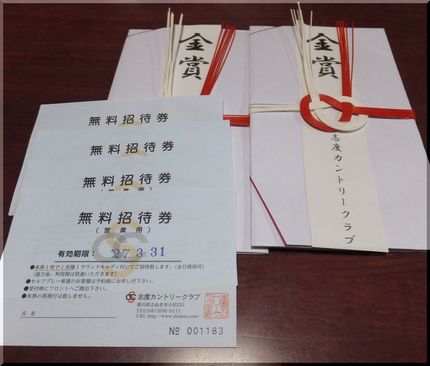 金賞
金賞
志度カントリークラブ
無料招待券
無料招待券
無料招待券
(営業用)
無料招待券
(営業用)
有効期限: 27.3.31
●本券1枚で1名様1ラウンドキャディ付にてご招待致します。(全日使用可)
(協力金、利用税は別途いただきます)
●セルフプレー希望のお客様は予約時にお申し付け下さい。
●受付時にフロントへご提出下さい。
●本券の再発行は致しません。
志度カントリークラブ
氏名
№ 001183